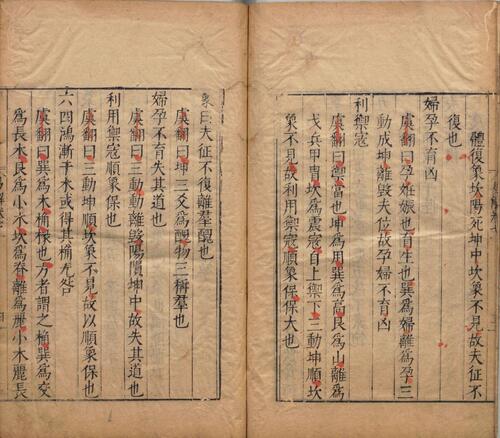 體復象坎陽死坤中坎象不見故夫征不
復也
婦孕不育凶
虞翻曰孕妊娠也育生也巽爲婦離爲孕三
動成坤離毀失位故孕婦不育凶
利禦寇
虞翻曰禦當也坤爲用巽爲高艮爲山離爲
戈兵甲冑坎爲震寇自上禦下三動坤順坎
象不見故利用禦寇順象保保大也
象曰夫征不復離羣醜也
虞翻曰坤三爻爲醜物三稱羣也
婦孕不育失其道也
虞翻曰三動離毀陽隕坤中故失其道也
利用禦寇順象保也
虞翻曰三動坤順坎象不見故以順象保也
六四鴻漸于木或得其桷无咎
虞翻曰巽爲木桷椽也方者謂之桷巽爲交
爲長木艮爲小木坎爲脊離爲麗小木麗長